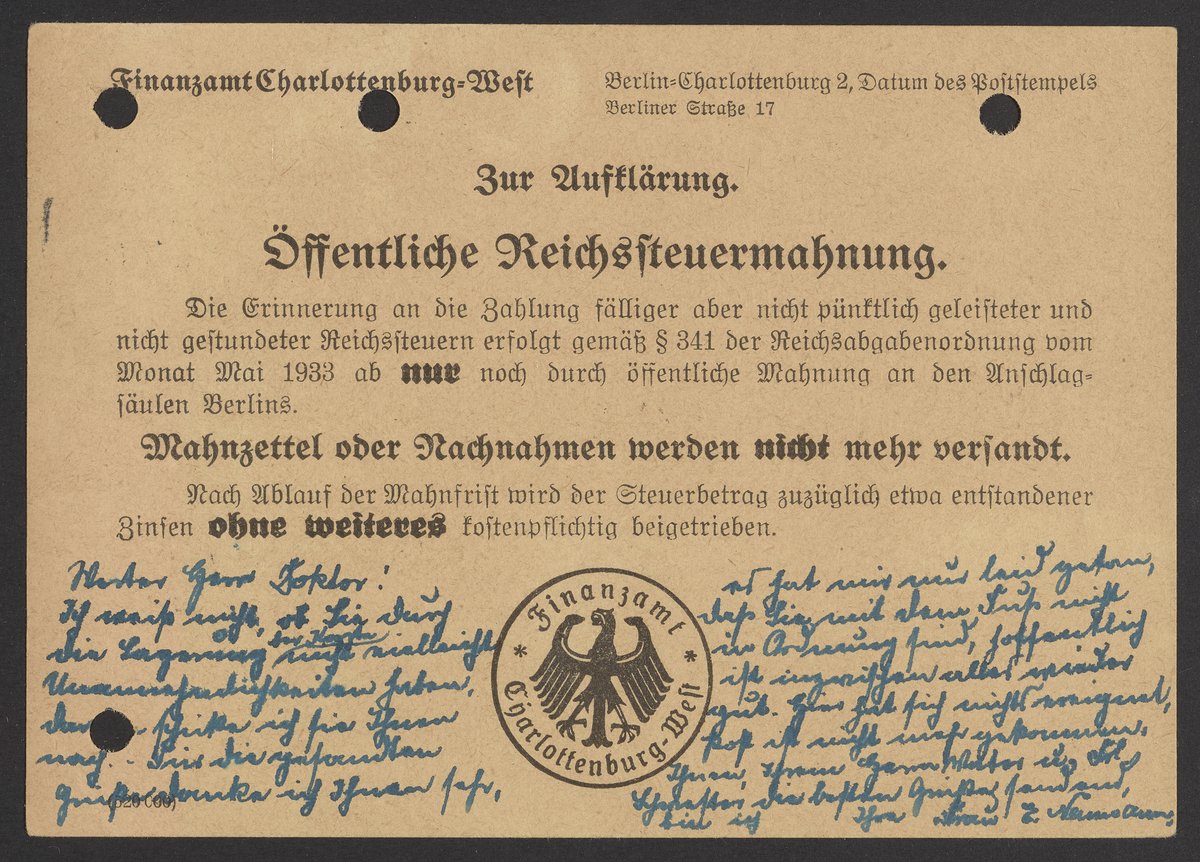 Finanzamt Charlottenburg-West
Berlin-Charlottenburg 2, Datum des Poststempels
Berliner Straße 17
Zur Aufklärung.
Öffentliche Reichssteuermahnung.
Die Erinnerung an die Zahlung fälliger aber nicht pünktlich geleisteter und
nicht gestundeter Reichssteuern erfolgt gemäß § 341 der Reichsabgabenordnung vom
Monat Mai 1933 ab nur noch durch öffentliche Mahnung an den Anschlag-
säulen Berlins.
Mahnzettel oder Nachnahmen werden nicht mehr versandt.
Nach Ablauf der Mahnfrist wird der Steuerbetrag zuzüglich etwa entstandener
Zinsen ohne weiteres kostenpflichtig beigetrieben.
Werter Herr Doktor!
Ich weiß nicht, ob Sie durch
die Lagerung der vielleicht
Unannehmlichkeiten haben,
schicke ich sie Ihnen
nach. - Für die gesandten
Grüße danke ich Ihnen sehr,
Finanzamt
Charlottenburg-West
es hat mir nur leid getan,
daß Sie mit dem Fuß nicht
in Ordnung sind, hoffentlich
ist inzwischen alles wieder
gut. Hier hat sich nichts ereignet,
Post ist nicht mehr gekommen.
Ihnen, Ihrem Herrn Vater u.
Schwester die besten Grüße sendend,
bin ich Ihre Frau E. Naumann.